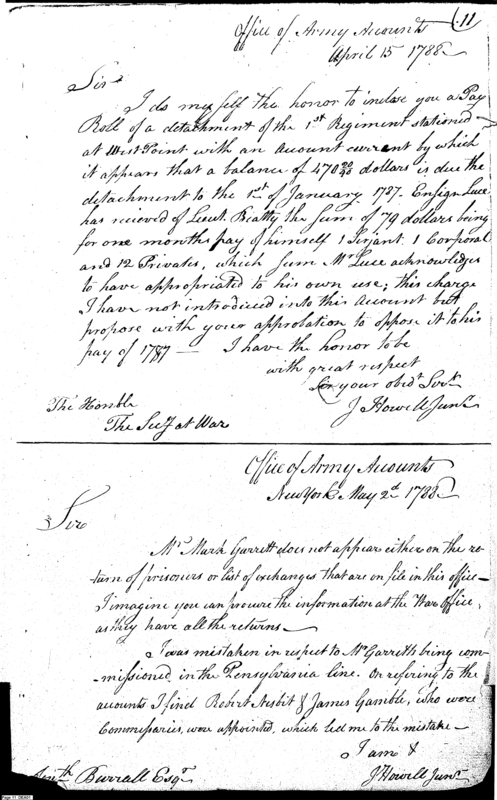 11
Office of Army Accounts
April 15 1788
Sir
I do my self the honor to inclose you a Pay
Roll of a detachment of the 1st Regiment stationed
at West Point with an Account current by which
it appears that a balance of 470 dollars is due the
detachment to the 1st of January 1787. Ensign Luce
has recieved of Lieut. Beatty the sum of 79 dollars being
for one months pay of himself 1 Serjant. 1 Corporal
and 12 Privates, which sum Mr Luce acknowledges
to have appropriated to his own use; this charge
I have not introduced into this Account but
propose with your approbation to oppose it to his
pay of 1787 — I have the honor to be
with great respect
Sir your obedt Servt
J Howell Junr
The Honble
The Secy at War
Office of Army Accounts
New York May 2d 1788
Sir
Mr Mark Garrett does not appear either on the re-
turn of prisoners or list of exchanges that are on file in this office—
I imagine you can procure the information at the War Office,
as they have all the returns—
I was mistaken in respect to Mr Garretts being com-
missioned in the Pensylvania line. On refering to the
accounts I find Robert Nisbit & James Gamble, who were
Commissaries, were appointed, which led me to the mistake—
I am &
J Howell Junr
Jonth Burrall Esqr